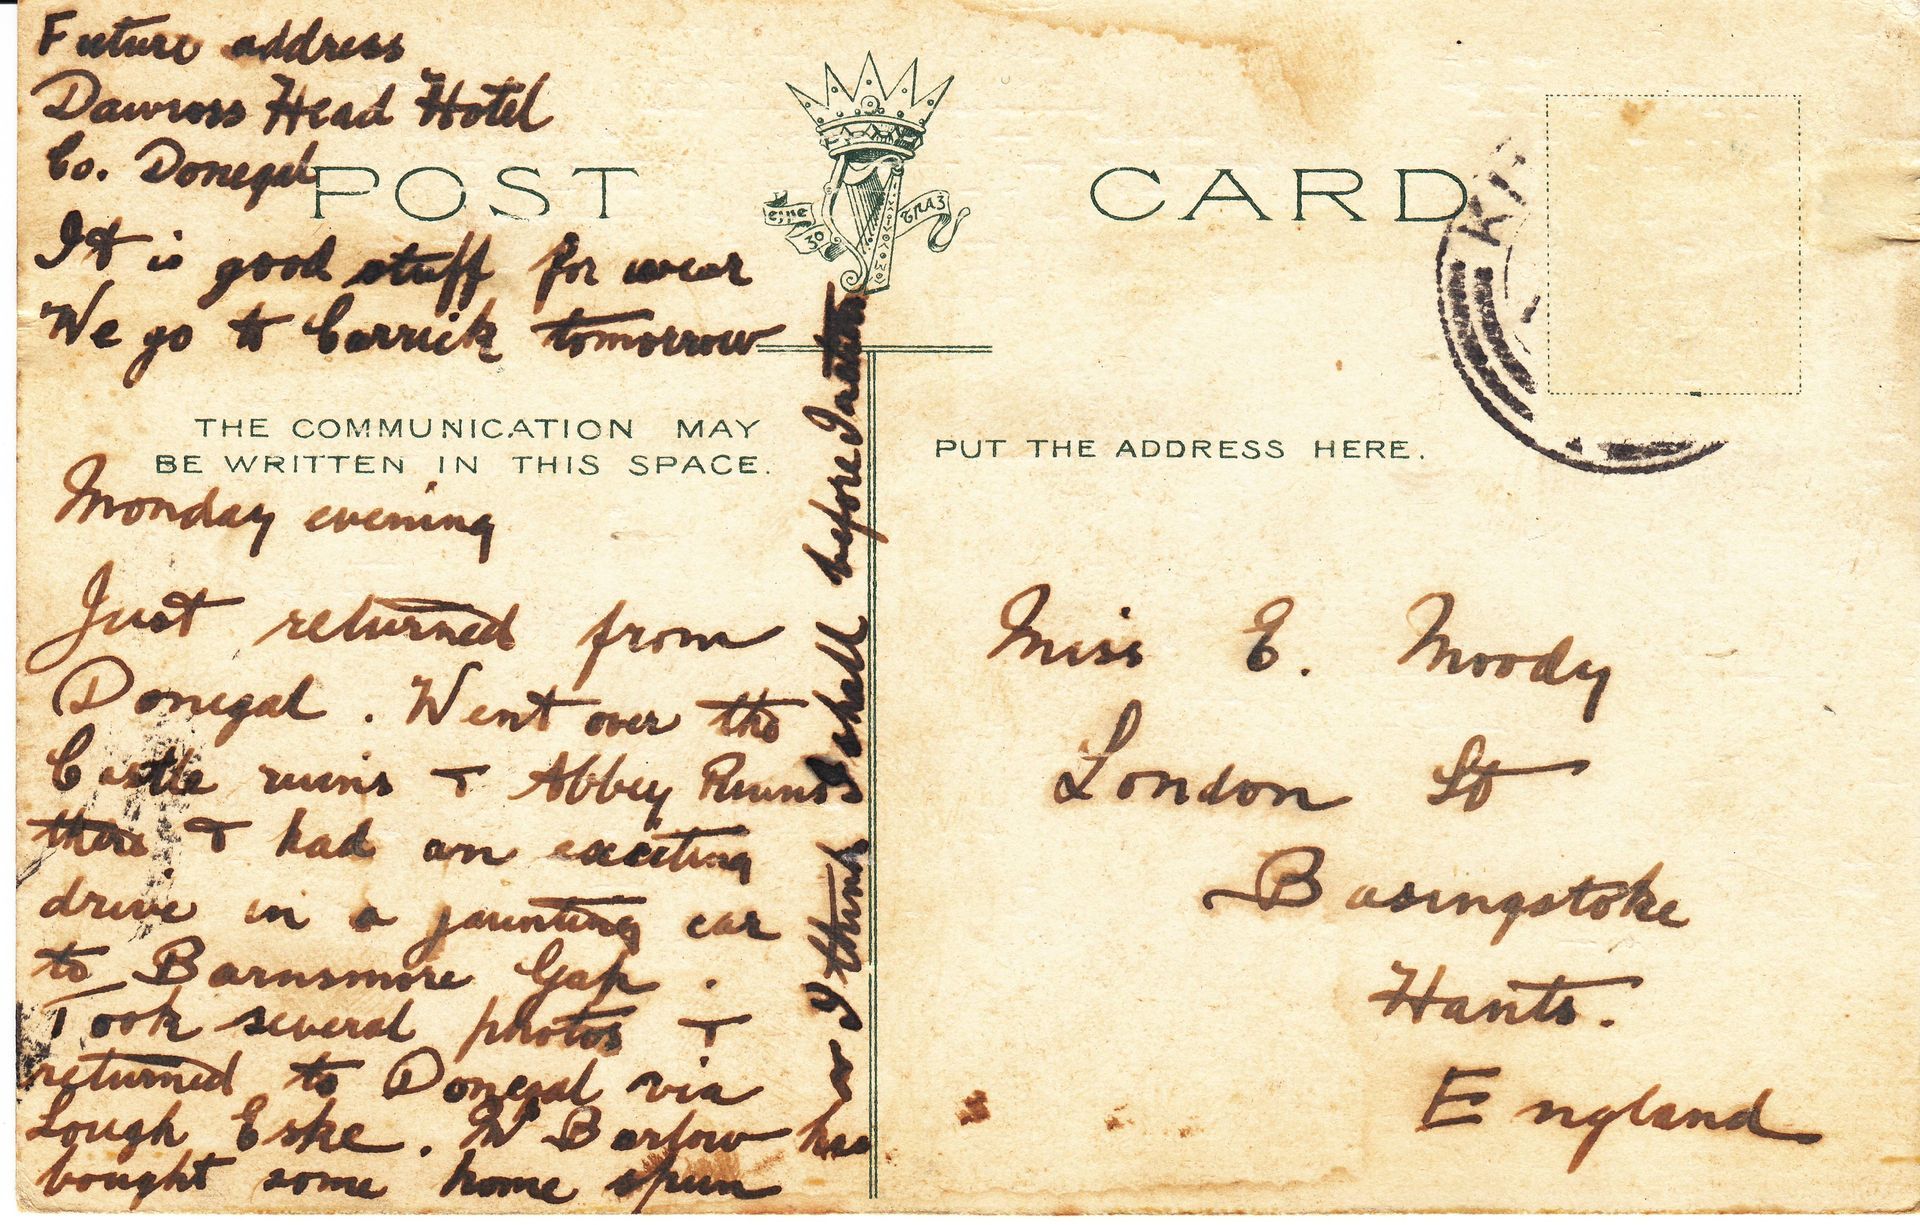 Future address
Dawross Head Hotel
Co. Donegal
POST CARD
It is good stuff for wear
We go to Carrick tomorrow
THE COMMUNICATION MAY
BE WRITTEN IN THIS SPACE.
Monday evening
Just returned from
Donegal. Went over the
Castle ruins & Abbey Ruins
there & had an exciting
drive in a jaunting car
to Barnsmore Gap.
Took several photos &
returned to Donegal via
Lough Eske. Mr Barlow has
bought some home spun
I think I shall before
PUT THE ADDRESS HERE.
Miss E. Moody
London St
Basingstoke
Hants.
England